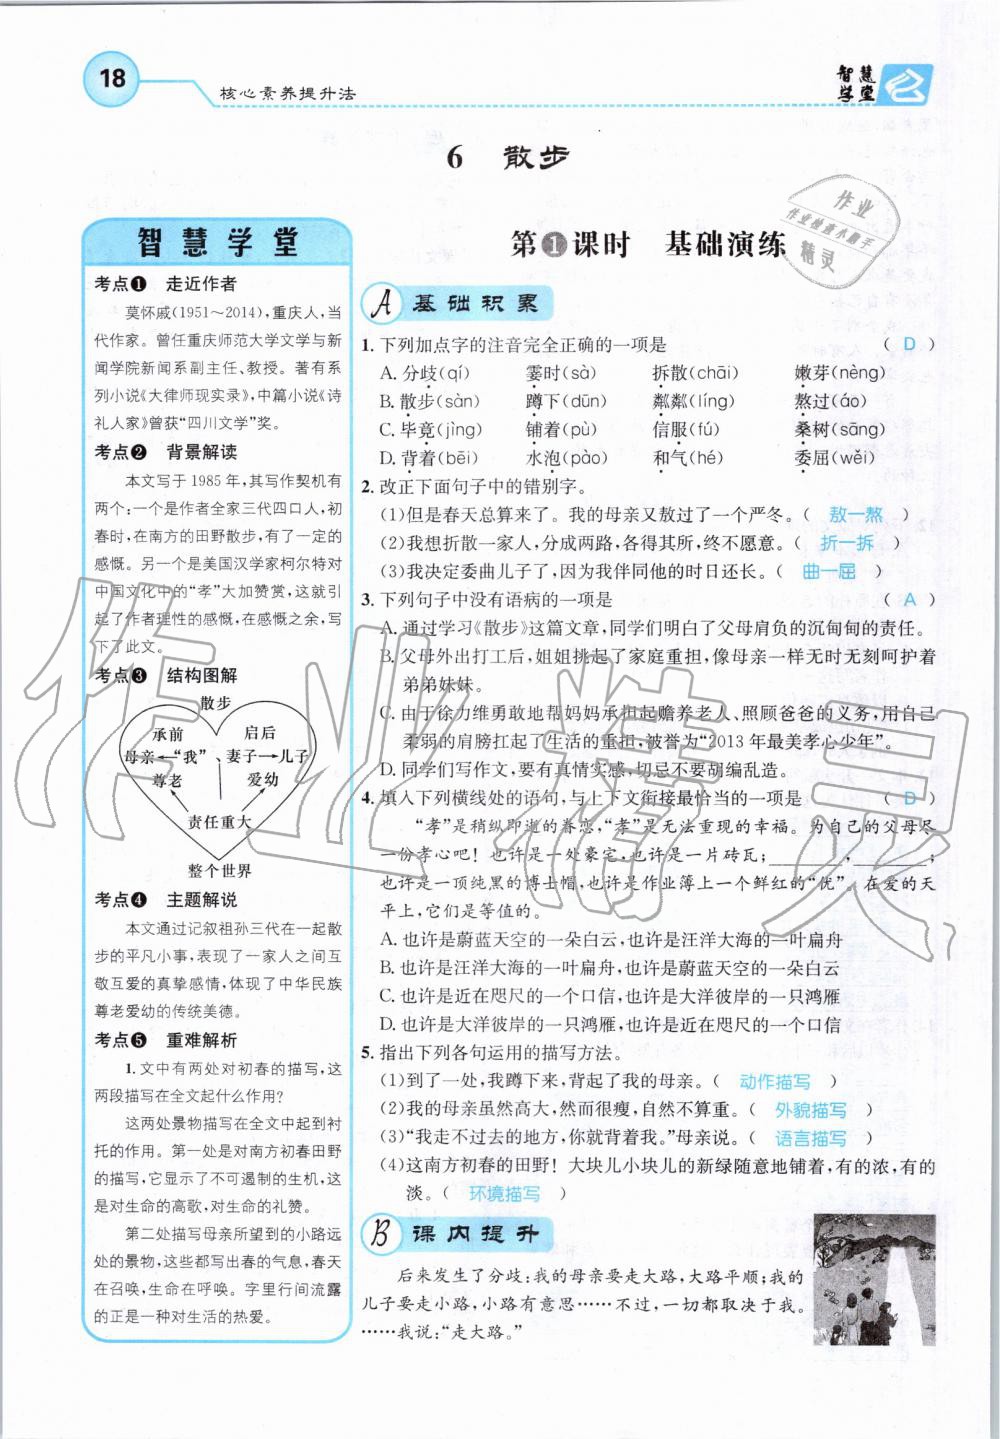 18
核心素养提升法
智慧
学堂
6 散步
智慧学堂
考点❶ 走近作者
莫怀戚(1951～2014),重庆人,当
代作家。曾任重庆师范大学文学与新
闻学院新闻系副主任、教授。著有系
列小说《大律师现实录》,中篇小说《诗
礼人家》曾获“四川文学”奖。
考点❷ 背景解读
本文写于1985年,其写作契机有
两个:一个是作者全家三代四口人,初
春时,在南方的田野散步,有了一定的
感慨。另一个是美国汉学家柯尔特对
中国文化中的“孝”大加赞赏,这就引
起了作者理性的感慨,在感慨之余,写
下了此文。
考点❸ 结构图解
散步
承前 启后
母亲←“我”、妻子→儿子
尊老 爱幼
责任重大
整个世界
考点❹ 主题解说
本文通过记叙祖孙三代在一起散
步的平凡小事,表现了一家人之间互
敬互爱的真挚感情,体现了中华民族
尊老爱幼的传统美德。
考点❺ 重难解析
1.文中有两处对初春的描写,这
两段描写在全文起什么作用?
这两处景物描写在全文中起到衬
托的作用。第一处是对南方初春田野
的描写,它显示了不可遏制的生机,这
是对生命的高歌,对生命的礼赞。
第二处描写母亲所望到的小路远
处的景物,这些都写出春的气息,春天
在召唤,生命在呼唤。字里行间流露
的正是一种对生活的热爱。
第❶课时 基础演练
A 基础积累
1.下列加点字的注音完全正确的一项是 ( D )
A.分歧(qí) 霎时(sà) 拆散(chāi) 嫩芽(nèng)
B.散步(sàn) 蹲下(dūn) 粼粼(líng) 熬过(áo)
C.毕竟(jìng) 铺着(pù) 信服(fú) 桑树(sāng)
D.背着(bēi) 水泡(pào) 和气(hé) 委屈(wěi)
2.改正下面句子中的错别字。
(1)但是春天总算来了。我的母亲又敖过了一个严冬。( 敖一熬 )
(2)我想折散一家人,分成两路,各得其所,终不愿意。( 折一拆 )
(3)我决定委曲儿子了,因为我伴同他的时日还长。( 曲一屈 )
3.下列句子中没有语病的一项是 ( A )
A.通过学习《散步》这篇文章,同学们明白了父母肩负的沉甸甸的责任。
B.父母外出打工后,姐姐挑起了家庭重担,像母亲一样无时无刻呵护着
弟弟妹妹。
C.由于徐力维勇敢地帮妈妈承担起赡养老人、照顾爸爸的义务,用自己
柔弱的肩膀扛起了生活的重担,被誉为“2013年最美孝心少年”。
D.同学们写作文,要有真情实感,切忌不要胡编乱造。
4.填入下列横线处的语句,与上下文衔接最恰当的一项是 ( D )
“孝”是稍纵即逝的眷恋,“孝”是无法重现的幸福。为自己的父母尽
一份孝心吧!也许是一处豪宅,也许是一片砖瓦;________,________;
也许是一顶纯黑的博士帽,也许是作业簿上一个鲜红的“优”,在爱的天
平上,它们是等值的。
A.也许是蔚蓝天空的一朵白云,也许是汪洋大海的一叶扁舟
B.也许是汪洋大海的一叶扁舟,也许是蔚蓝天空的一朵白云
C.也许是近在咫尺的一个口信,也许是大洋彼岸的一只鸿雁
D.也许是大洋彼岸的一只鸿雁,也许是近在咫尺的一个口信
5.指出下列各句运用的描写方法。
(1)到了一处,我蹲下来,背起了我的母亲。( 动作描写 )
(2)我的母亲虽然高大,然而很瘦,自然不算重。( 外貌描写 )
(3)“我走不过去的地方,你就背着我。”母亲说。( 语言描写 )
(4)这南方初春的田野!大块儿小块儿的新绿随意地铺着,有的浓,有的
淡。( 环境描写 )
B 课内提升
后来发生了分歧:我的母亲要走大路,大路平顺;我的
儿子要走小路,小路有意思……不过,一切都取决于我。
……我说:“走大路。”
作业
作业检查小助手
精灵
作业精灵